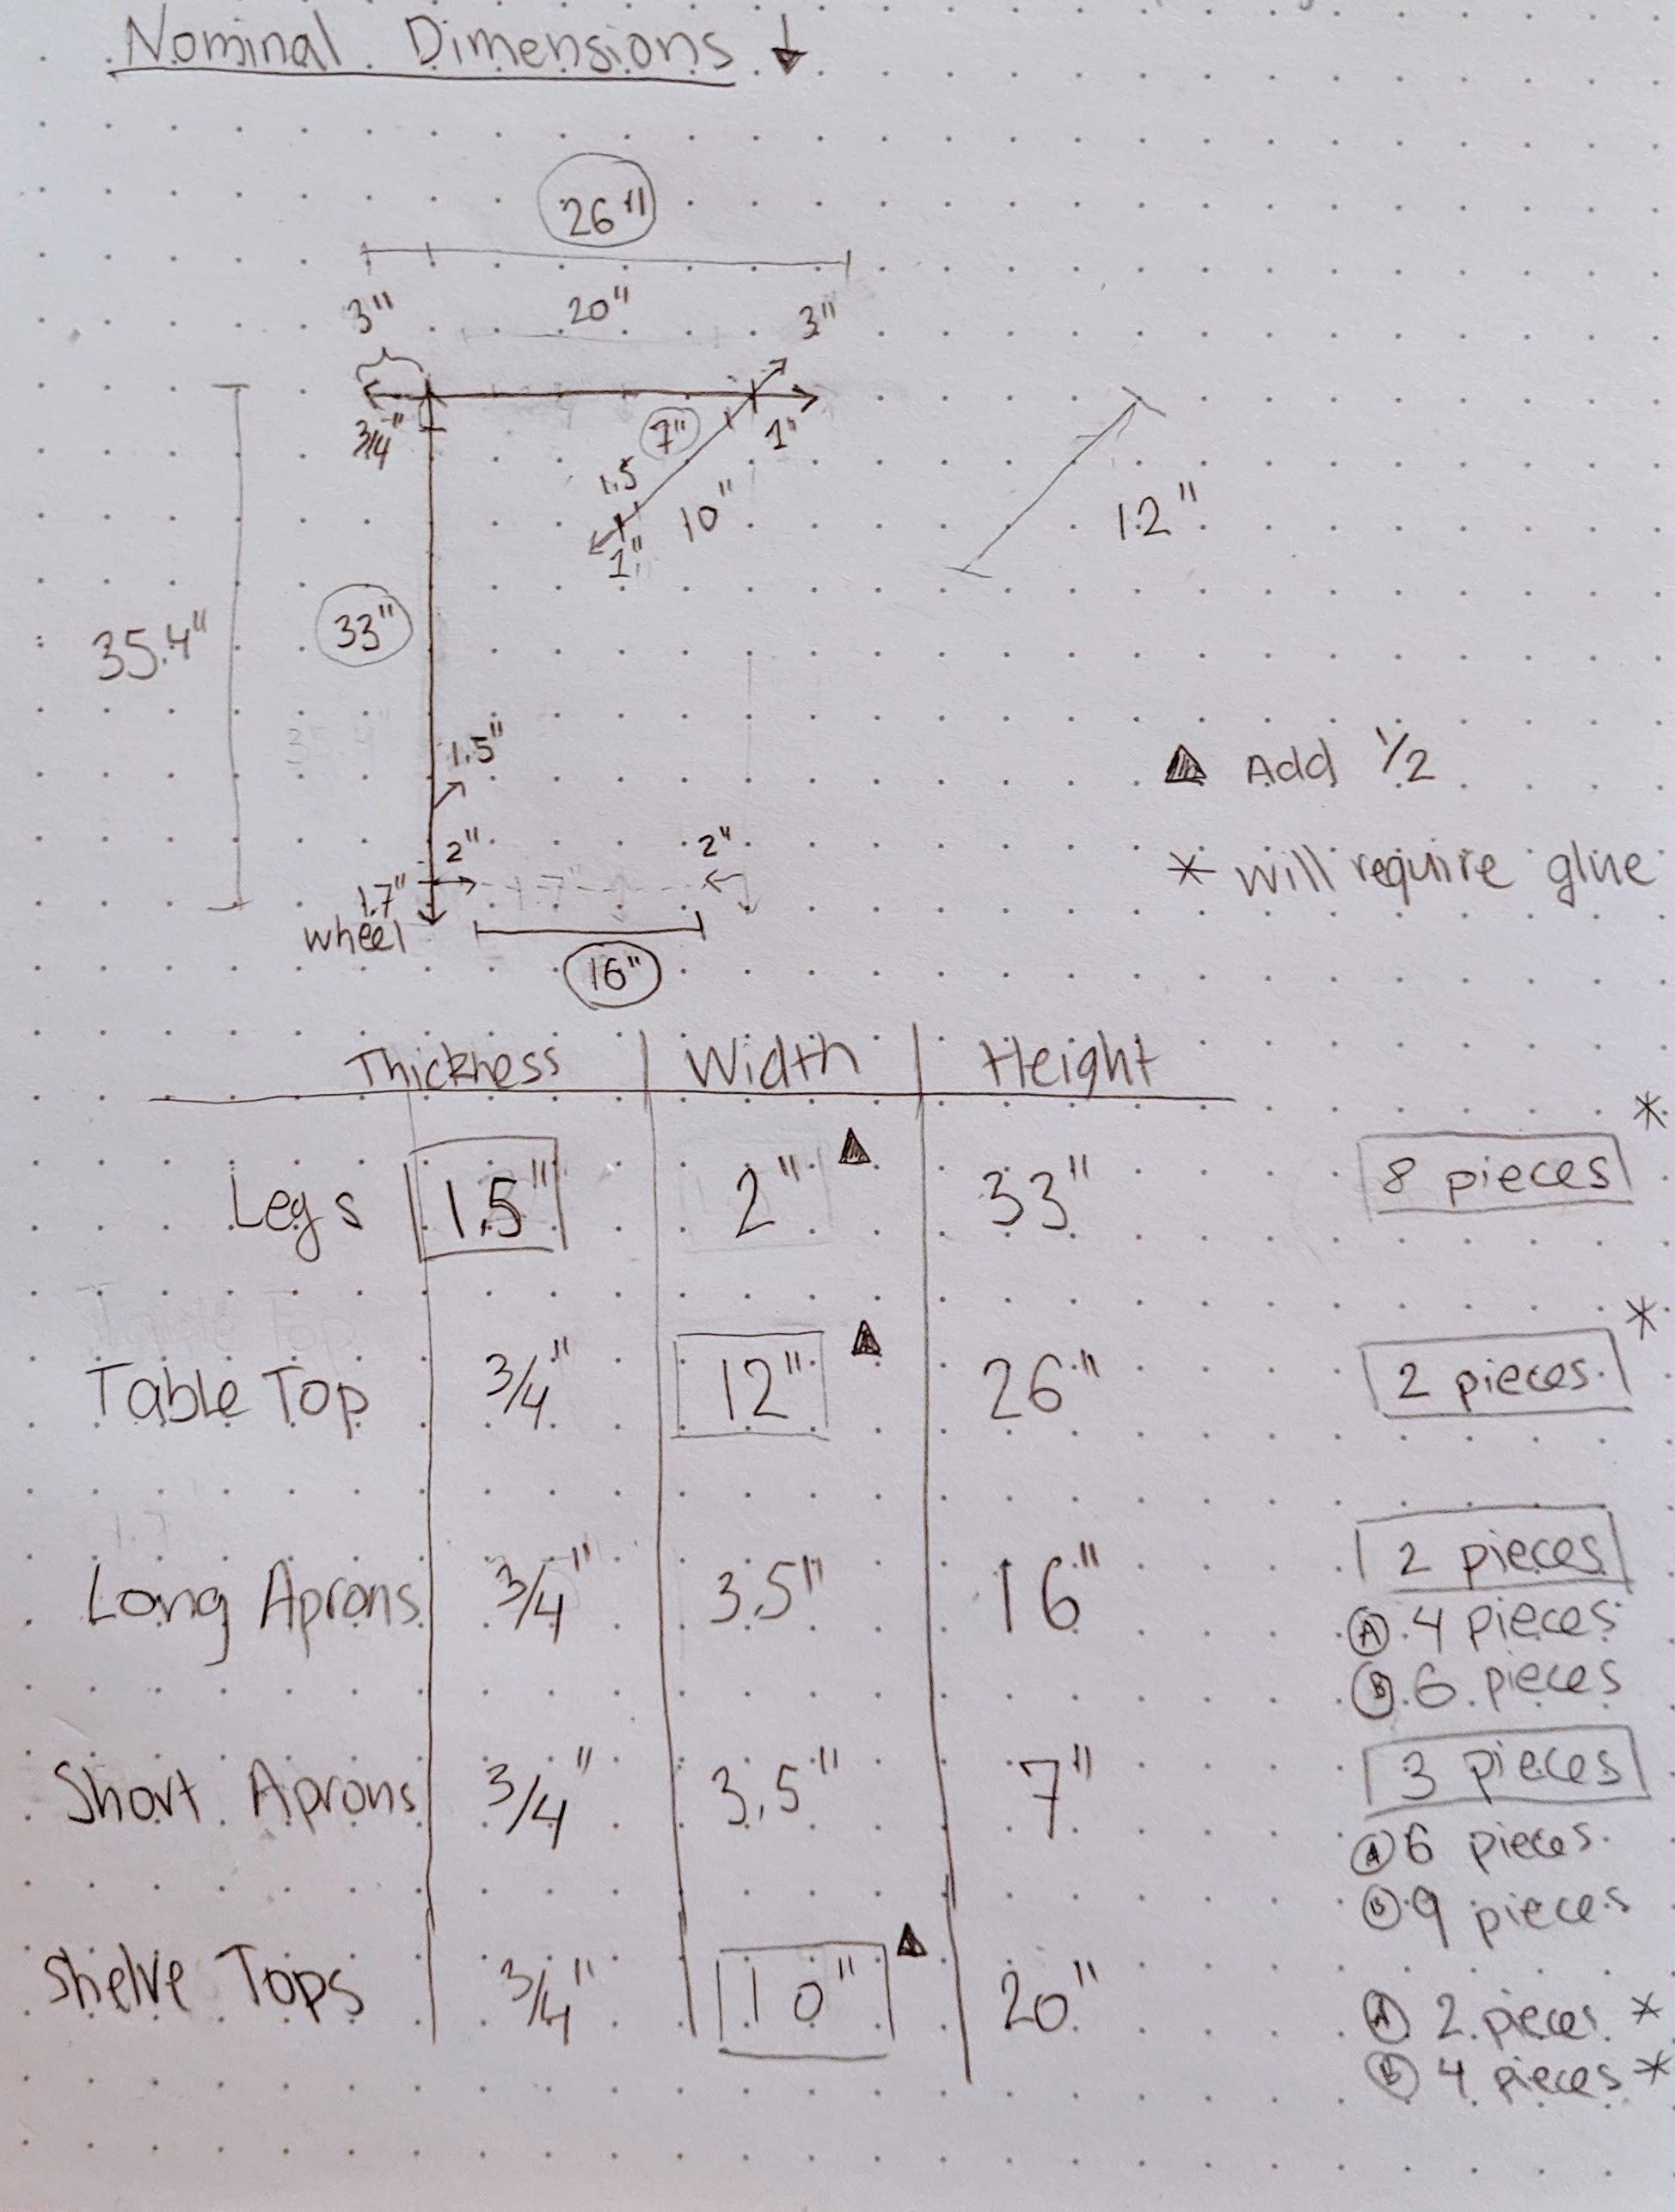 Nominal Dimensions ↓
26"
3" 20" 3"
3/4" 7" 1"
1.5 10" 12"
1"
35.4" 33"
35.4"
1.5" ▲ Add 1/2
2" 2" * will require glue
1.7" 1.7"
wheel
16"
Thickness Width Height
Legs 1.5" 2" ▲ 33" 8 pieces *
Table Top
Table Top 3/4" 12" ▲ 26" 2 pieces *
1.7
Long Aprons 3/4" 3.5" 16" 2 pieces
Ⓐ 4 pieces
Ⓑ 6 pieces
Short Aprons 3/4" 3.5" 7" 3 pieces
Ⓐ 6 pieces
Ⓑ 9 pieces
Shelve Tops 3/4" 10" ▲ 20" Ⓐ 2 pieces *
Ⓑ 4 pieces *